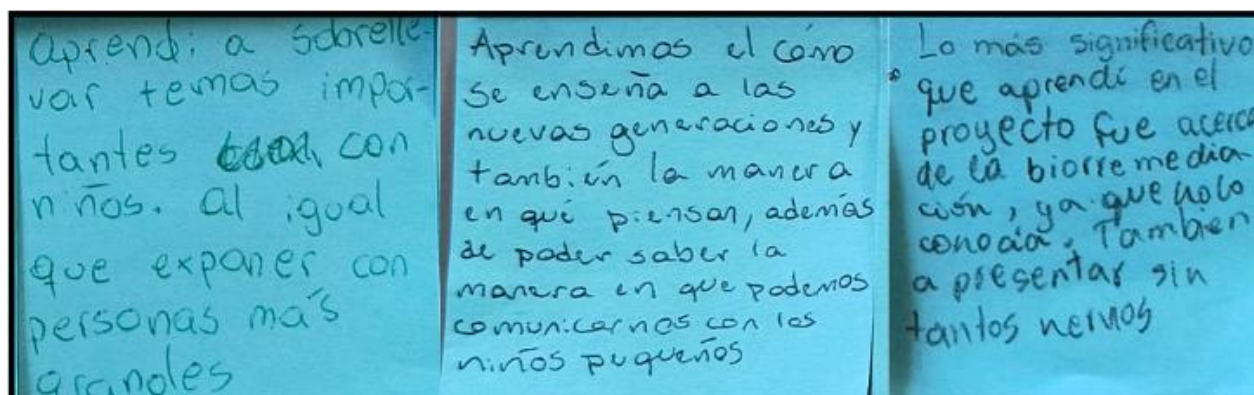 aprendi a sobrelle-
var temas impor-
tantes con
niños. al igual
que exponer con
personas más
grandes
Aprendimos el cómo
se enseña a las
nuevas generaciones y
también la manera
en que piensan, además
de poder saber la
manera en que podemos
comunicarnos con los
niños pequeños
Lo más significativo
que aprendí en el
proyecto fue acerca
de la biorremedia-
ción, ya que no lo
conocía. Tambien
a presentar sin
tantos nervios